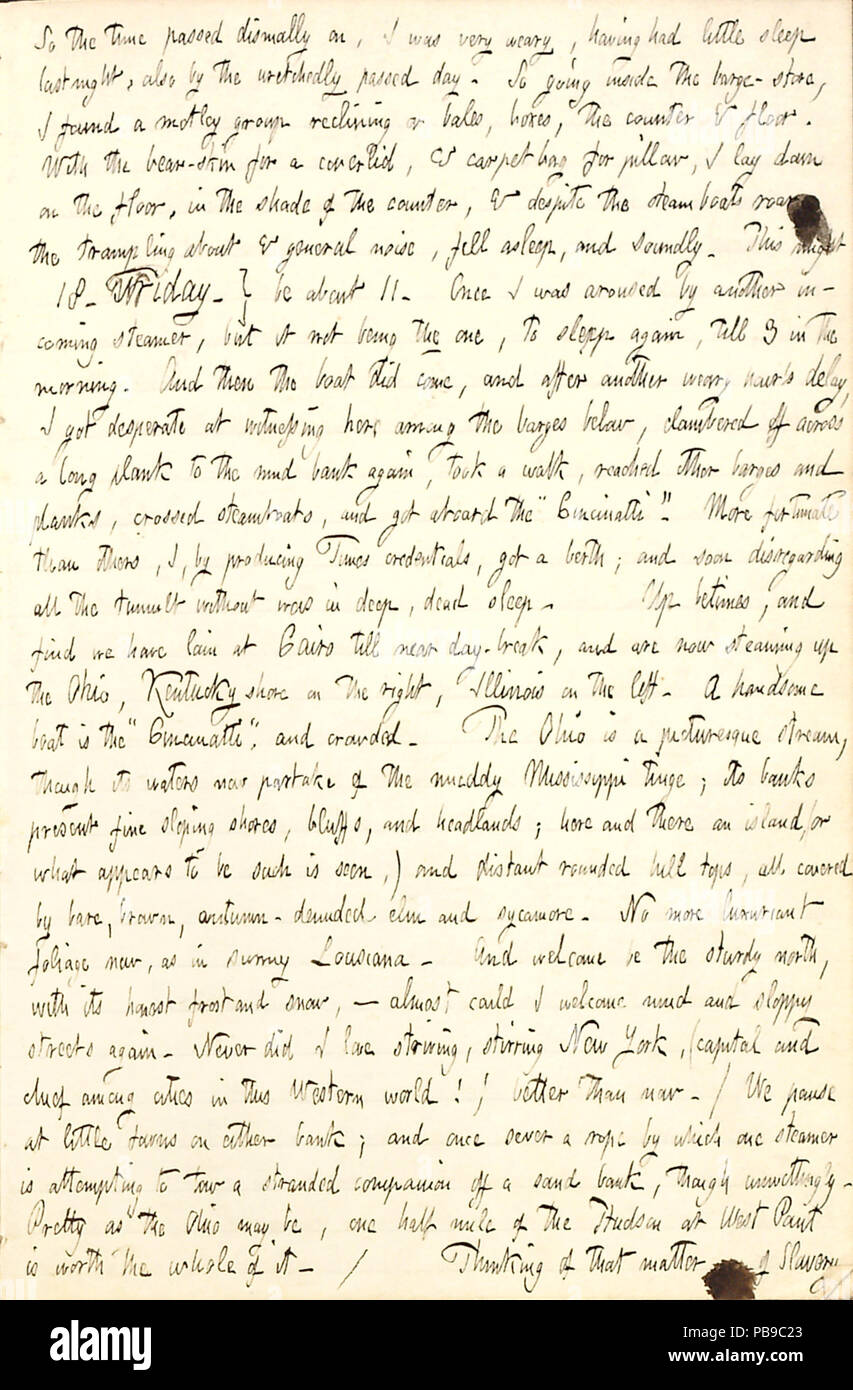 So the time passed dismally on, I was very weary, having had little sleep
last night, also by the wretchedly passed day. So going inside the barge-store,
I found a motley group reclining on bales, boxes, the counter & floor.
With the bear-skin for a coverlid, & carpet bag for pillow, I lay down
on the floor, in the shade of the counter, & despite the steamboats roar
the trampling about & general noise, fell asleep, and soundly. This might
18. Friday. } be about 11. Once I was aroused by another in-
coming steamer, but it not being the one, to sleep again, till 3 in the
morning. And then the boat did come, and after another weary hour's delay,
I got desperate at witnessing her among the barges below, clambered off across
a long plank to the mud bank again, took a walk, reached other barges and
planks, crossed steamboats, and got aboard the "Cincinatti". More fortunate
than others, I, by producing Times credentials, got a berth; and soon disregarding
all the tumult without was in deep, dead sleep. Up betimes, and
find we have lain at Cairo till near day-break, and are now steaming up
the Ohio, Kentucky shore on the right, Illinois on the left. A handsome
boat is the "Cincinatti", and crowded. The Ohio is a picturesque stream,
though its waters now partake of the muddy Mississippi tinge; its banks
present fine sloping shores, bluffs, and headlands; here and there an island (or
what appears to be such is seen,) and distant rounded hill tops, all covered
by bare, brown, autumn-denuded elm and sycamore. No more luxuriant
foliage now, as in sunny Lousiana. And welcome be the sturdy north,
with its honest frost and snow, — almost could I welcome mud and sloppy
streets again. Never did I love striving, stirring New York, (capital and
chief among cities in this Western world!) better than now. / We pause
at little towns on either bank; and once sever a rope by which one steamer
is attempting to tow a stranded companion off a sand bank, though unwittingly.
Pretty as the Ohio may be, one half mile of the Hudson at West Point
is worth the whole of it. / Thinking of that matter of Slavery
alamy
Image ID: PB9C23
www.alamy.com